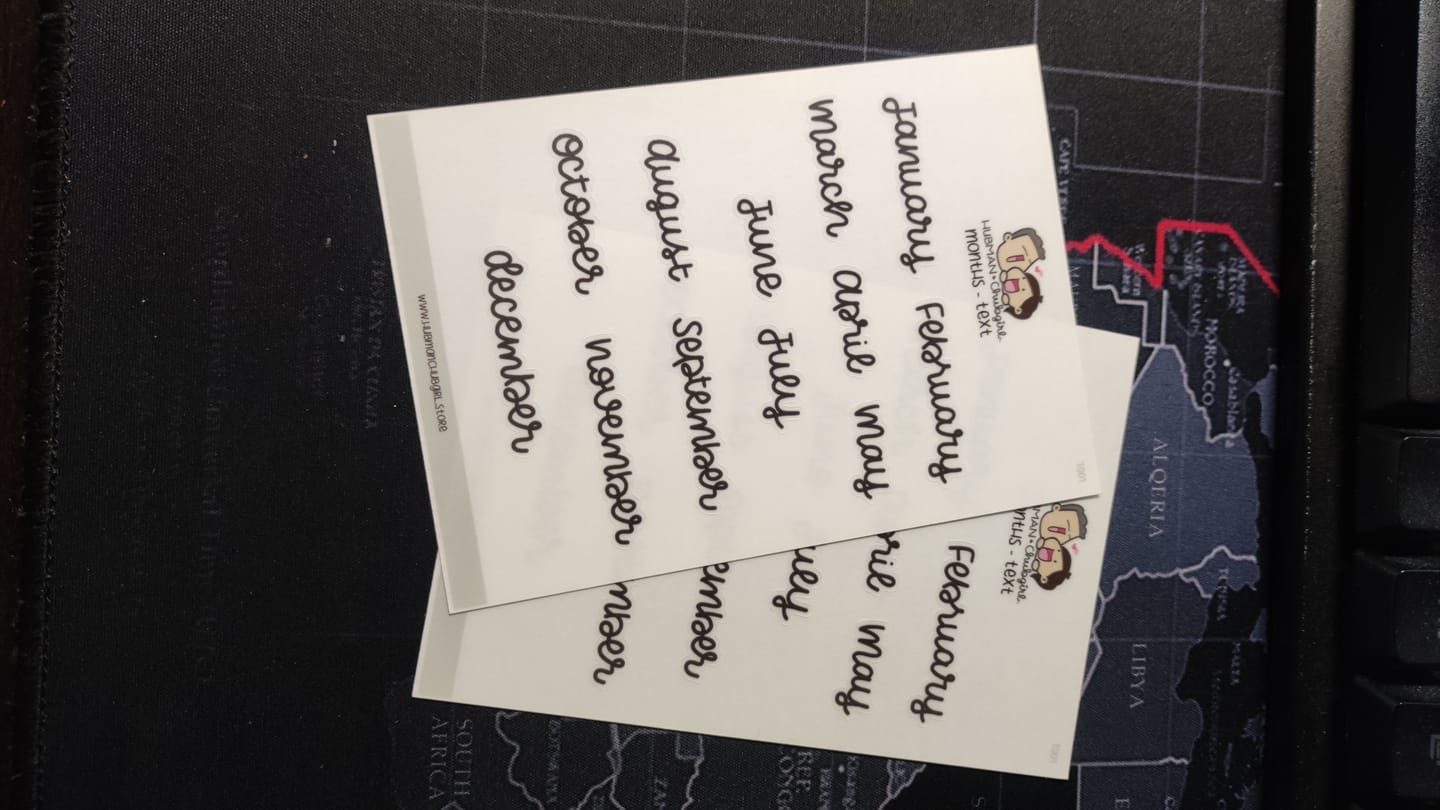 HUBMAN+Chubgirl
months - text
January February
march april may
June July
august september
october november
december
www.HUBmanCHUBgirl.store
1001
MAN+Chubgirl
nths - text
February
ril may
uly
ember
mber
1001
MOROCCO
Casablanca
ALGERIA
LIBYA
MALTA
SOUTH
AFRICA